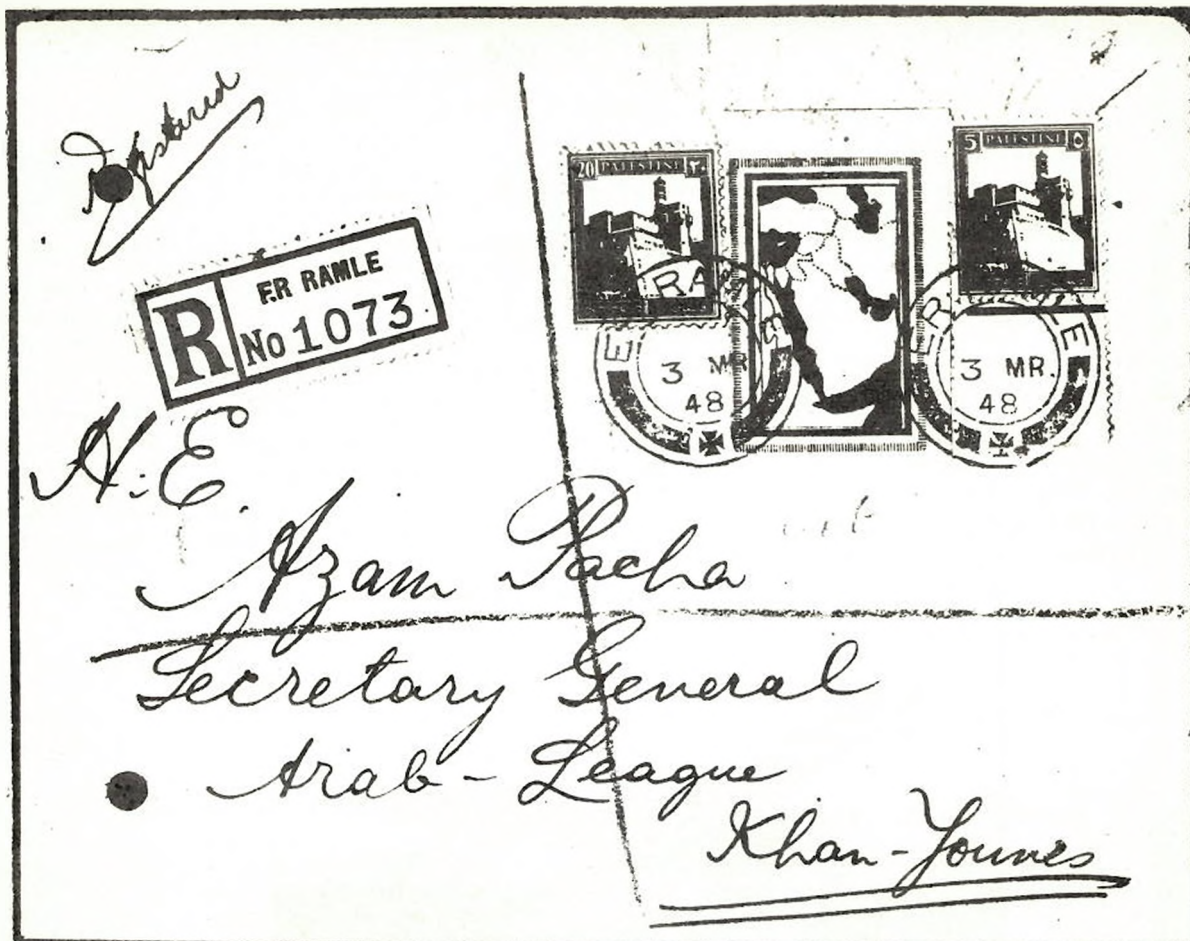 Registered
R F.R RAMLE
No 1073
20 PALESTINE ٢٠
5 PALESTINE ٥
3 MR
48
ER
3 MR.
48
H.E.
Azam Pacha
Secretary General
Arab-League
Khan-Younes